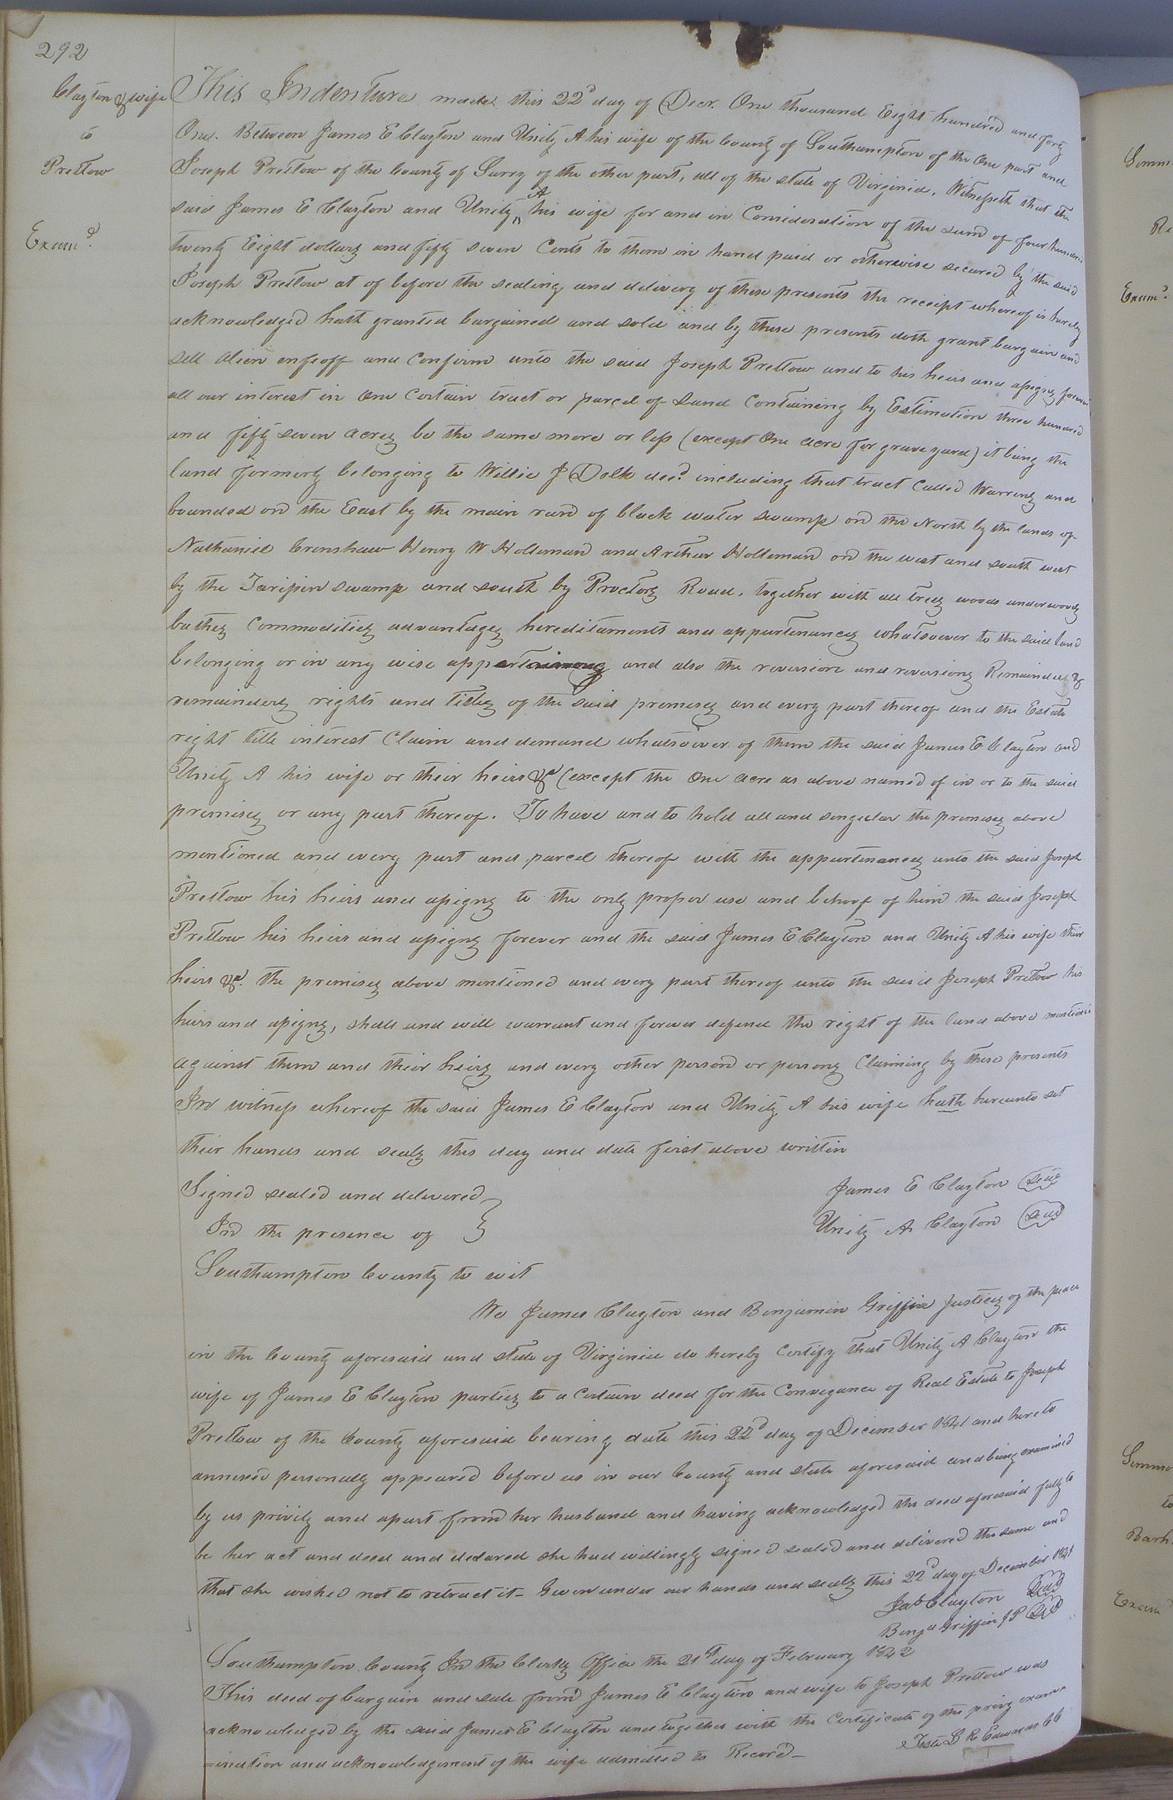 292
Clayton & wife
to
Pretlow
Examd.
This Indenture made this 22d day of Decr. One thousand Eight hundred and forty
One. Between James E Clayton and Unity A his wife of the County of Southampton of the One part and
Joseph Pretlow of the County of Surry of the other part, all of the state of Virginia, Witnesseth that the
said James E Clayton and Unity A his wife for and in Consideration of the sum of four hundred
twenty Eight dollars and fifty seven Cents to them in hand paid or otherwise secured by the said
Joseph Pretlow at of before the sealing and delivery of these presents the receipt whereof is hereby
acknowledged hath granted bargained and sold and by these presents doth grant bargain and
sell alien enfeoff and Confirm unto the said Joseph Pretlow and to his heirs and assigns forever
all our interest in one Certain tract or parcel of Land Containing by Estimation three hundred
and fifty seven acres be the same more or less (except One acre for grave yard) it being the
land formerly belonging to Willie J Delk decd. including that tract Called Warrens and
bounded on the East by the main run of black water swamp on the North by the lands of
Nathaniel Crenshaw Henry W Holleman and Arthur Holleman on the west and south west
by the Taripin swamp and south by Proctors Road, together with all trees woods underwoods
bathes Commodities advantages hereditaments and appurtenances whatsoever to the said land
belonging or in any wise appertaining and also the reversion and reversions Remainder &
remainders rights and titles of the said premises and every part thereof and the Estate
right title interest Claim and demand whatsoever of them the said James E Clayton and
Unity A his wife or their heirs &c (except the One acre as above named of in or to the said
premises or any part thereof. To have and to hold all and singular the premises above
mentioned and every part and parcel thereof with the appurtenances unto the said Joseph
Pretlow his heirs and assigns to the only proper use and behoof of him the said Joseph
Pretlow his heirs and assigns forever and the said James E Clayton and Unity A his wife their
heirs &c. the premises above mentioned and every part thereof unto the said Joseph Pretlow his
heirs and assigns, shall and will warrant and forever defend the right of the land above mentioned
against them and their heirs and every other person or persons Claiming by these presents
In witness whereof the said James E Clayton and Unity A his wife hath hereunto set
their hands and seals this day and date first above written
Signed sealed and delivered
In the presence of
James E Clayton Seal
Unity A Clayton Seal
Southampton County to wit
We James Clayton and Benjamin Griffin Justices of the peace
in the County aforesaid and state of Virginia do hereby Certify that Unity A Clayton the
wife of James E Clayton parties to a Certain deed for the Conveyance of Real Estate to Joseph
Pretlow of the County aforesaid bearing date this 22d day of December 1841 and hereto
annexed personally appeared before us in our County and state aforesaid and being examined
by us privily and apart from her husband and having acknowledged the deed aforesaid fully to
be her act and deed and declared she had willingly signed sealed and delivered the same and
that she wished not to retract it – Given under our hands and seals this 22d day of December 1841
Jas Clayton Seal
Benja Griffin JP Seal
Southampton County In the Clerks Office the 21st day of February 1842
This deed of bargain and sale from James E Clayton and wife to Joseph Pretlow was
acknowledged by the said James E Clayton and together with the Certificate of the privy exam-
ination and acknowledgement of the wife admitted to Record –
Teste L R Edwards CC
Examd.